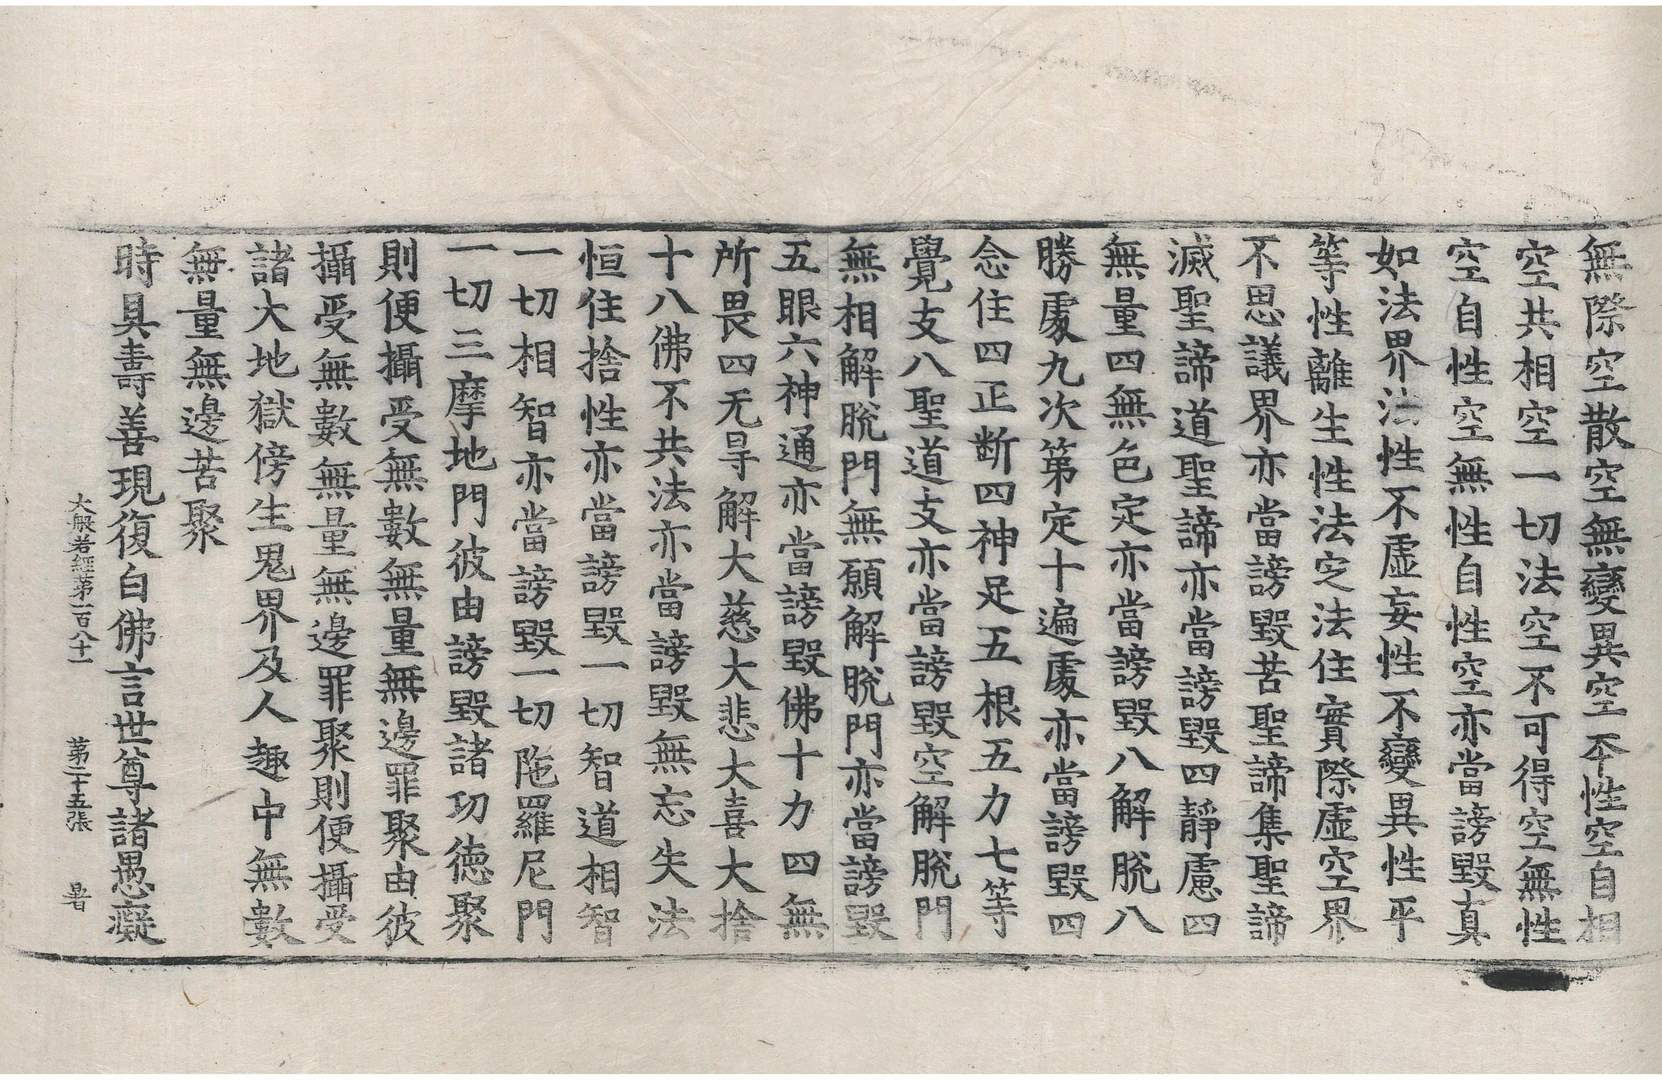 無際空散空無變異空夲性空自相
空共相空一切法空不可得空無性
空自性空無性自性空亦當謗毀真
如法界法性不虛妄性不變異性平
等性離生性法㝎法住實際虛空界
不思議界亦當謗毀苦聖諦集聖諦
滅聖諦道聖諦亦當謗毀四靜慮四
無量四無色定亦當謗毀八解脫八
勝處九次第定十遍處亦當謗毀四
念住四正斷四神足五根五力七等
覺支八聖道支亦當謗毀空解脫門
無相解脫門無願解脫門亦當謗毀
五眼六神通亦當謗毀佛十力四無
所畏四无㝵解大慈大悲大喜大捨
十八佛不共法亦當謗毀無忘失法
恒住捨性亦當謗毀一切智道相智
一切相智亦當謗毀一切陁羅尼門
一切三摩地門彼由謗毀諸功德聚
則便攝受無數無量無邊罪聚由彼
攝受無數無量無邊罪聚則便攝受
諸大地獄傍生鬼界及人趣中無數
無量無邊苦聚
時具壽善現復白佛言世尊諸愚癡
大般若經第一百八十一 第二十五張